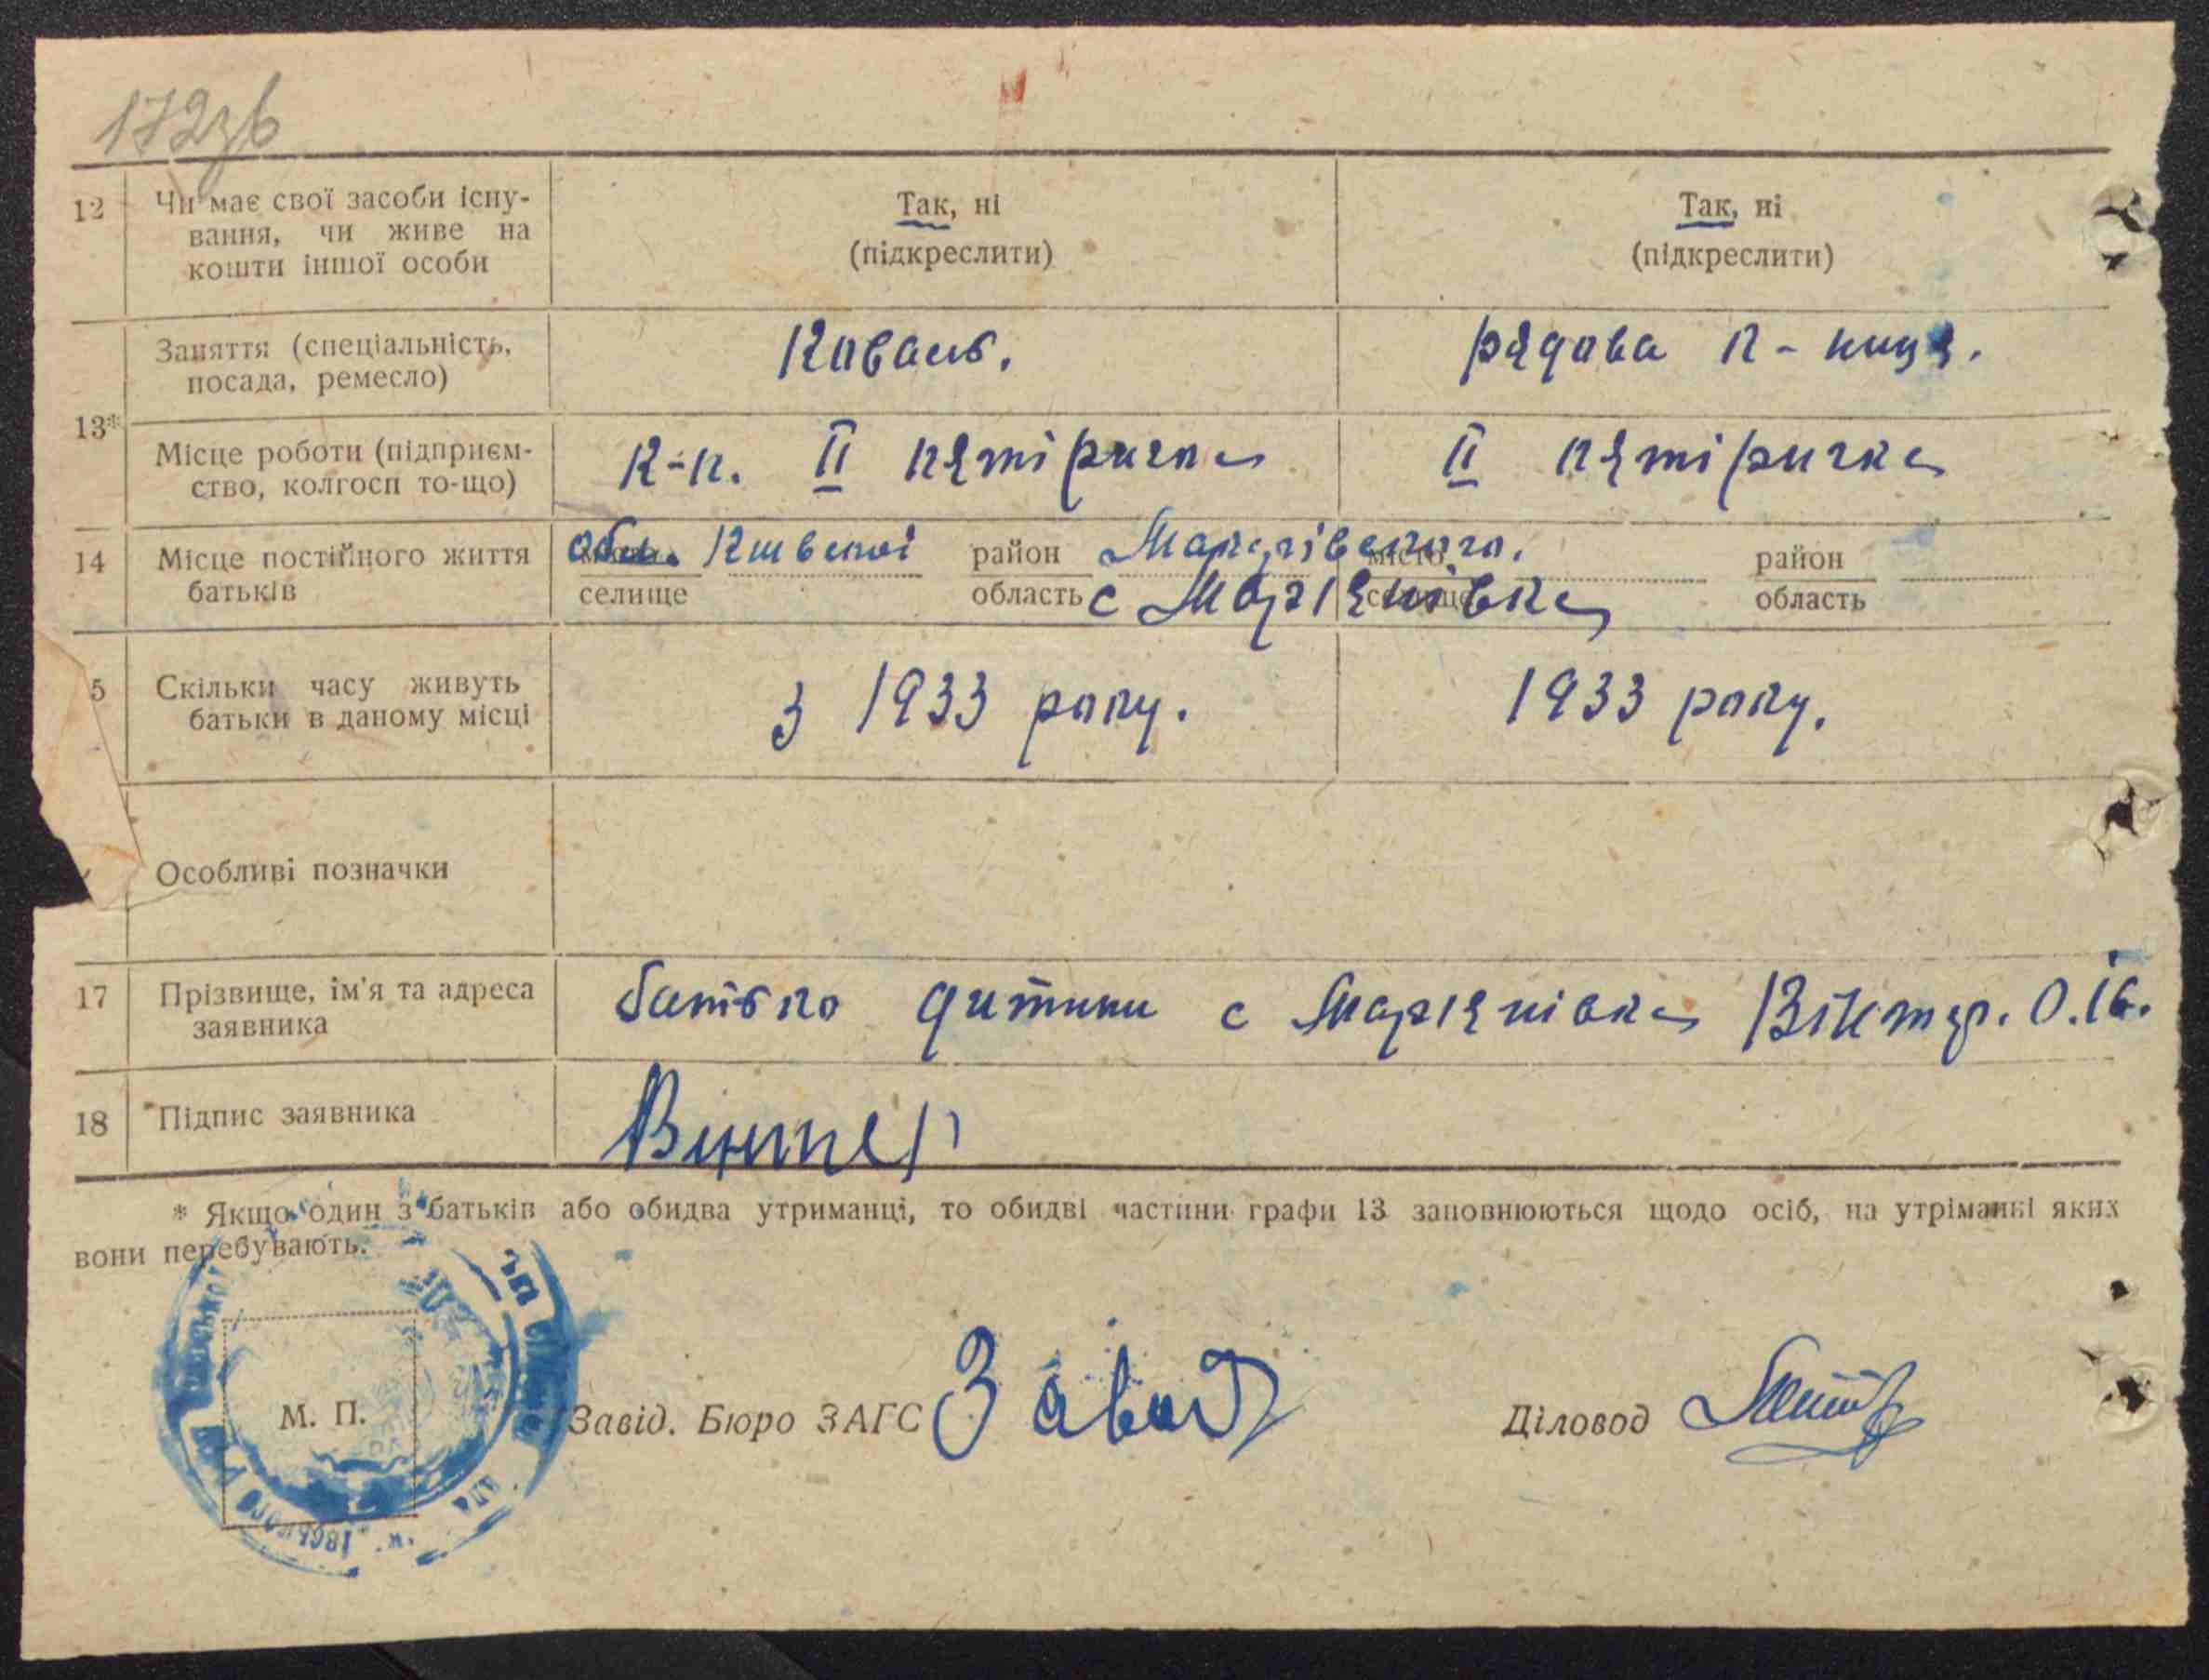 172зв
12 Чи має свої засоби існу- Так, ні Так, ні
вання, чи живе на
кошти іншої особи (підкреслити) (підкреслити)
Заняття (спеціальність, Коваль. рядова к-ниця.
посада, ремесло)
13*
Місце роботи (підприєм- к-п. ІІ пятірична ІІ пятірична
ство, колгосп то-що)
14 Місце постійного життя обл. Київської район Макарівського. місто район
батьків селище область с Мар'янівка селище область
5 Скільки часу живуть з 1933 року. 1933 року.
батьки в даному місці
Особливі позначки
17 Прізвище, ім'я та адреса батько дитини с Мар'янівка
заявника
18 Підпис заявника Винтер
* Якщо один з батьків або обидва утриманці, то обидві частини графи 13 заповнюються щодо осіб, на утріманні яких
вони перебувають.
М. П. Завід. Бюро ЗАГС Діловод